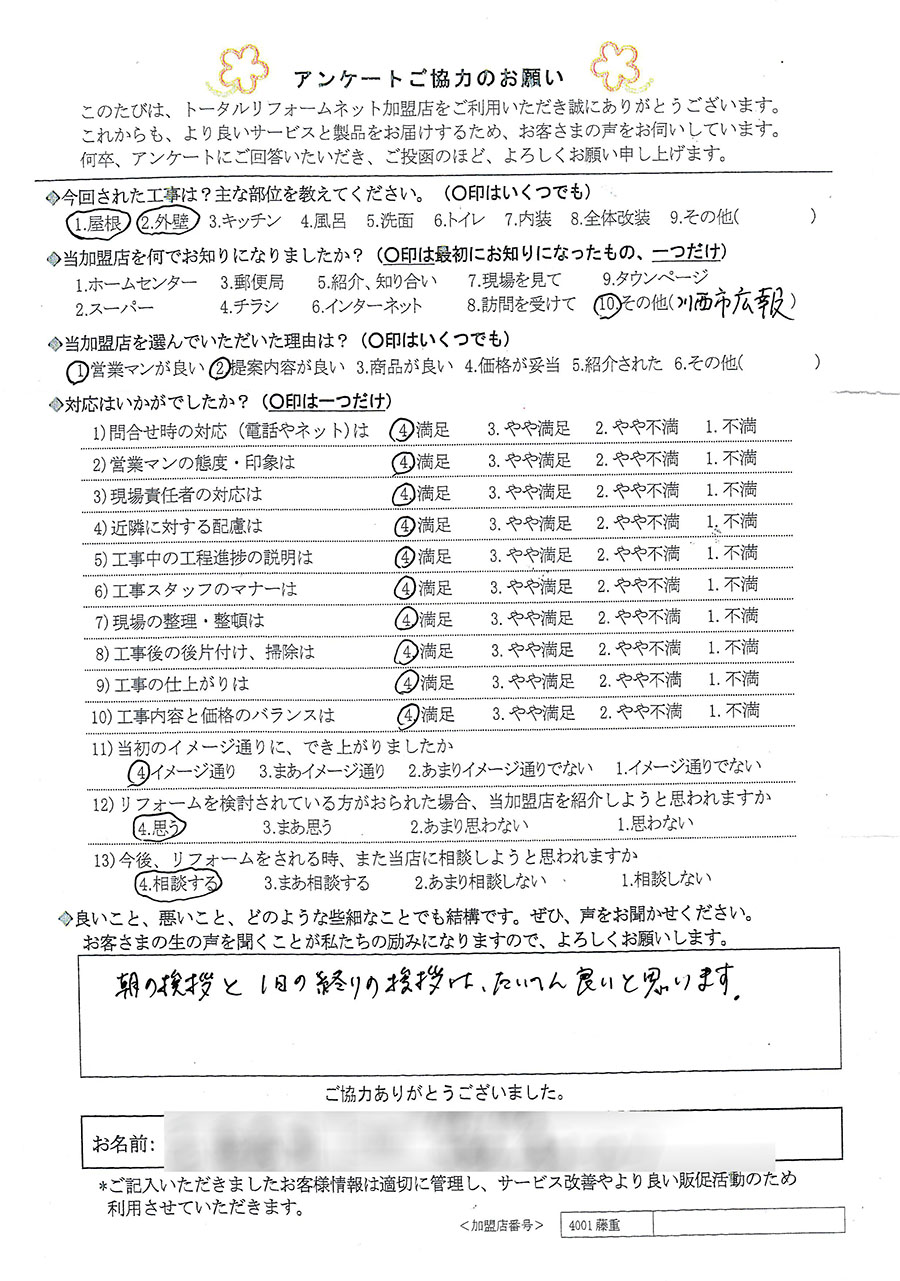 アンケートご協力のお願い
このたびは、トータルリフォームネット加盟店をご利用いただき誠にありがとうございます。
これからも、より良いサービスと製品をお届けするため、お客さまの声をお伺いしています。
何卒、アンケートにご回答いたいだき、ご投函のほど、よろしくお願い申し上げます。
◆今回された工事は？主な部位を教えてください。（〇印はいくつでも）
1.屋根 2.外壁 3.キッチン 4.風呂 5.洗面 6.トイレ 7.内装 8.全体改装 9.その他( )
◆当加盟店を何でお知りになりましたか？（〇印は最初にお知りになったもの、一つだけ）
1.ホームセンター 3.郵便局 5.紹介、知り合い 7.現場を見て 9.タウンページ
2.スーパー 4.チラシ 6.インターネット 8.訪問を受けて 10その他(川西市広報)
◆当加盟店を選んでいただいた理由は？（〇印はいくつでも）
1営業マンが良い 2提案内容が良い 3.商品が良い 4.価格が妥当 5.紹介された 6.その他( )
◆対応はいかがでしたか？（〇印は一つだけ）
1)問合せ時の対応（電話やネット)は 4満足 3.やや満足 2.やや不満 1.不満
2)営業マンの態度・印象は 4.満足 3.やや満足 2.やや不満 1.不満
3)現場責任者の対応は 4.満足 3.やや満足 2.やや不満 1.不満
4)近隣に対する配慮は 4満足 3.やや満足 2.やや不満 1.不満
5)工事中の工程進捗の説明は 4満足 3.やや満足 2.やや不満 1.不満
6)工事スタッフのマナーは 4満足 3.やや満足 2.やや不満 1.不満
7)現場の整理・整頓は 4満足 3.やや満足 2.やや不満 1.不満
8)工事後の後片付け、掃除は 4満足 3.やや満足 2.やや不満 1.不満
9)工事の仕上がりは 4満足 3.やや満足 2.やや不満 1.不満
10)工事内容と価格のバランスは 4満足 3.やや満足 2.やや不満 1.不満
11)当初のイメージ通りに、でき上がりましたか
4イメージ通り 3.まあイメージ通り 2.あまりイメージ通りでない 1.イメージ通りでない
12)リフォームを検討されている方がおられた場合、当加盟店を紹介しようと思われますか
4.思う 3.まあ思う 2.あまり思わない 1.思わない
13)今後、リフォームをされる時、また当店に相談しようと思われますか
4.相談する 3.まあ相談する 2.あまり相談しない 1.相談しない
◆良いこと、悪いこと、どのような些細なことでも結構です。ぜひ、声をお聞かせください。
お客さまの生の声を聞くことが私たちの励みになりますので、よろしくお願いします。
朝の挨拶と1日の終りの挨拶は、たいへん良いと思います。
ご協力ありがとうございました。
お名前:
*ご記入いただきましたお客様情報は適切に管理し、サービス改善やより良い販促活動のため
利用させていただきます。
＜加盟店番号＞ 4001藤重